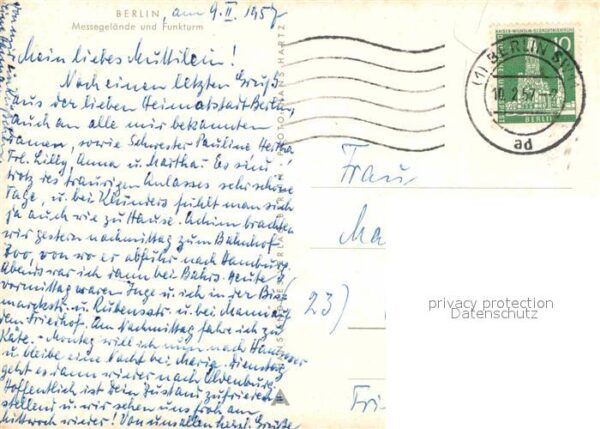 BERLIN, am 9.II.1957
Messegelände und Funkturm
Mein liebes Muttilein!
Noch einen letzten Gruß
aus der lieben Heimatstadt Berlin,
auch an alle mir bekannten
Damen, sowie Schwester Pauline, Hertha
Frl. Lilly, Anna u. Martha. Es sind
trotz des traurigen Anlasses sehr schöne
Tage, u. bei fühlt man sich
ja auch wie zu Hause. Achim brachten
wir gestern nachmittag zum Bahnhof
Zoo, von wo er abfuhr nach Hamburg.
Abends war ich dann bei Heute
vormittag waren Inge u. ich in der Bis-
marckstr. u. u. bei Mami auf
dem Friedhof. Am Nachmittag fahre ich zu
Käte. Montag will ich nun nach Hannover
u. bleibe eine Nacht bei Dienstag
geht es dann wieder nach Oldenburg.
Hoffentlich ist dein Zustand zufrieden-
stellend u. wir sehen uns froh am
Mittwoch wieder! Von uns allen herzl. Grüße
KAISER-WILHELM-GEDÄCHTNISKIRCHE
10
BERLIN
(1) BERLIN
10.2.57
ad
Frau
Ma
(23)
Fri
privacy protection
Datenschutz